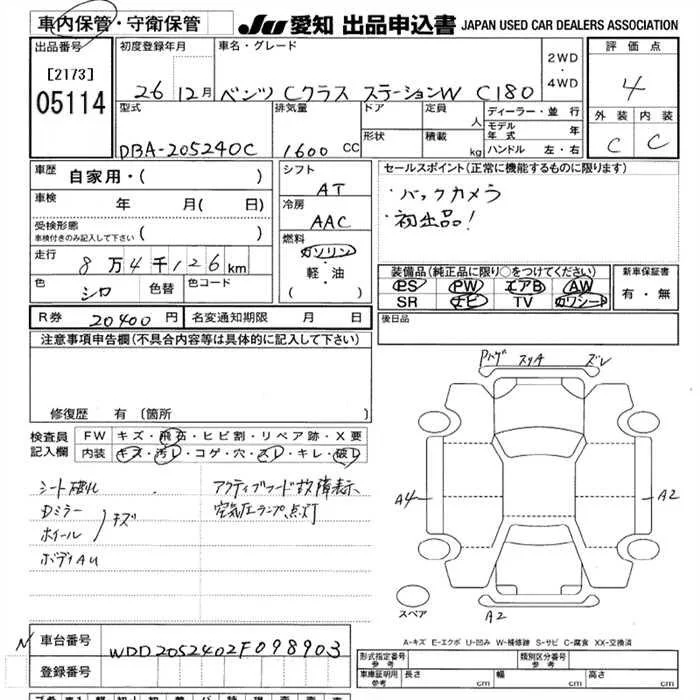 車内保管・守衛保管
JU 愛知 出品申込書 JAPAN USED CAR DEALERS ASSOCIATION
出品番号
[2173]
05114
初度登録年月
26 12月
車名・グレード
ベンツ Cクラス ステーションW C180
2WD
・
4WD
評価点
4
外装 内装
C C
型式
DBA-205240C
排気量
1600 CC
ドア
形状
定員 人
積載 kg
ディーラー・並行
モデル年式 年
ハンドル 左・右
車歴 自家用・( )
車検 年 月( 日)
受検形態
車検付きのみ記入して下さい ( )
走行 8万4千126km
色 シロ 色替 色コード
シフト
AT
冷房
AAC
燃料
ガソリン
・
軽・油
( )
セールスポイント(正常に機能するものに限ります)
・バックカメラ
・初出品!
装備品(純正品に限り○をつけてください)
PS PW エアB AW
SR ナビ TV カワシート
新車保証書
有・無
R券 20400円 名変通知期限 月 日
後日品
注意事項申告欄(不具合内容等は具体的に記入して下さい)
修復歴 有(箇所
検査員
記入欄
FW キズ・飛石・ヒビ割・リペア跡・X要
内装 キズ・汚レ・コゲ・穴・スレ・キレ・破レ
シート破れ
Dミラー
ホイール
キズ
ボディAU
アクティブフード故障表示
空気圧ランプ点灯
Pハゲ スリA ズレ
A4
A2
A2
スペア
A-キズ E-エクボ U-凹み W-補修跡 S-サビ C-腐食 XX-交換済
N
車台番号 WDD2052402F098903
登録番号
形式指定番号
参考
類別区分番号
参考
車庫証明用
参考
長さ cm 幅 cm 高さ cm